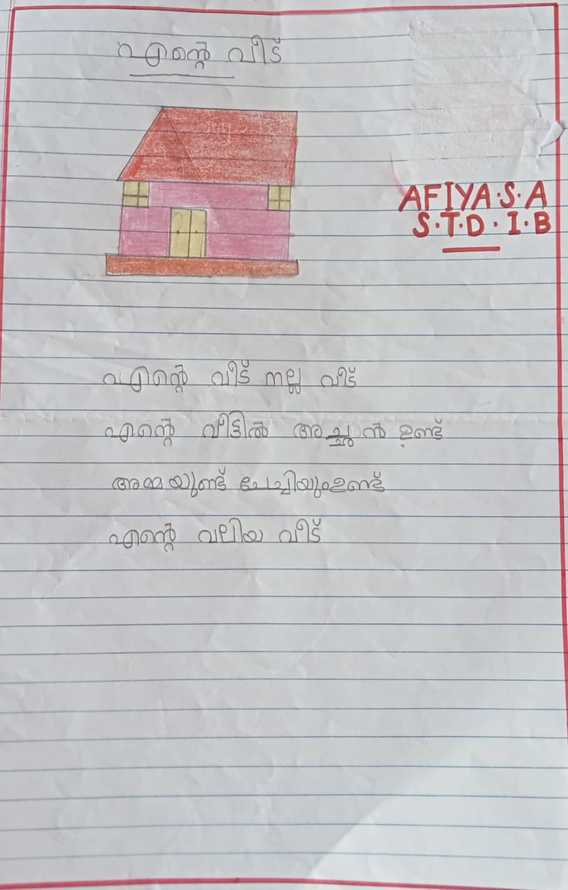 എന്റെ വീട്
AFIYA.S.A
S.T.D.I.B
എന്റെ വീട് നല്ല വീട്
എന്റെ വീട്ടിൽ അച്ചൻ ഉണ്ട്
അമ്മയുണ്ട് ചേച്ചിയുംഉണ്ട്
എന്റെ വലിയ വീട്